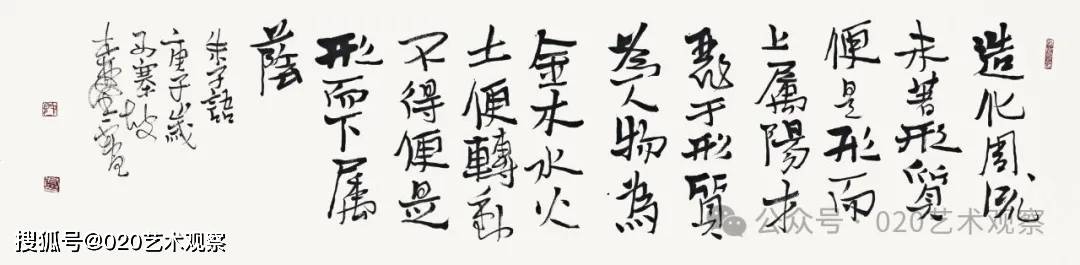 造化周流
未著形質
便是形而
上属陽才
麗于形質
為人物為
金木水火
土便轉動
不得便是
形而下属
蔭
朱子語
庚子歲
公众号 · 020艺术观察
搜狐号@020艺术观察